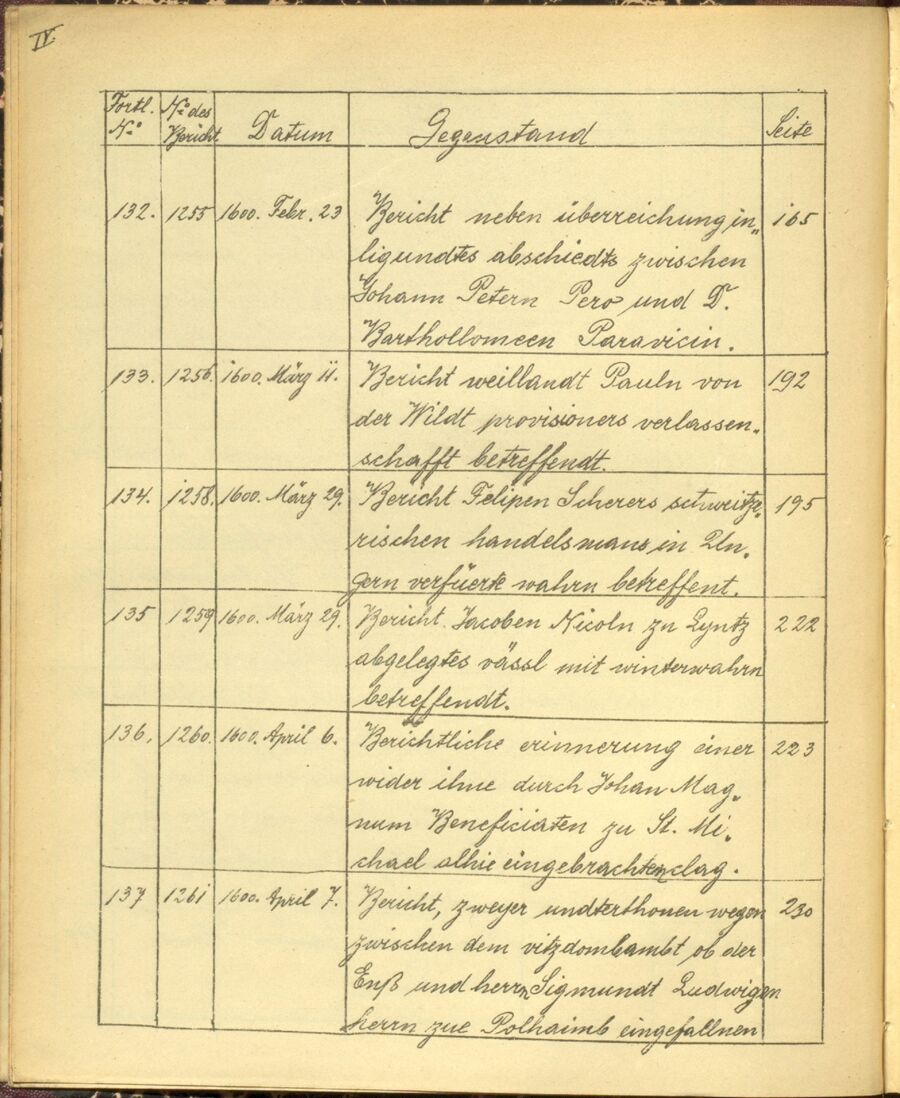 IV
Fortl. No. No. des Bericht Datum Gegenstand Seite
132. 1255 1600. Febr. 23 Bericht neben überreichung in„ 165
ligundtes abschiedts zwischen
Johann Petern Pero und D.
Barthollomeen Paravicin.
133. 1256. 1600. März 11. Bericht weillandt Pauln von 192
der Wildt provisioners verlassen„
schafft betreffendt.
134. 1258. 1600. März 29. Bericht Felipen Scherers schweitze„ 195
rischen handelsmans in Un„
gern verfüerte wahrn betreffent.
135 1259 1600. März 29. Bericht Jacoben Nicoln zu Lyntz 222
abgelegtes vässl mit winterwahrn
betreffendt.
136. 1260. 1600. April 6. Berichtliche erinnerung einer 223
wider ihne durch Johan Mag„
num Beneficiaten zu St. Mi„
chael alhie eingebrachten clag.
137 1261 1600. April 7. Bericht, zweyer undterthonen wegen 230
zwischen dem vitzdombambt ob der
Enß und herrn Sigmundt Ludwigen
herrn zue Polhaimb eingefallnen